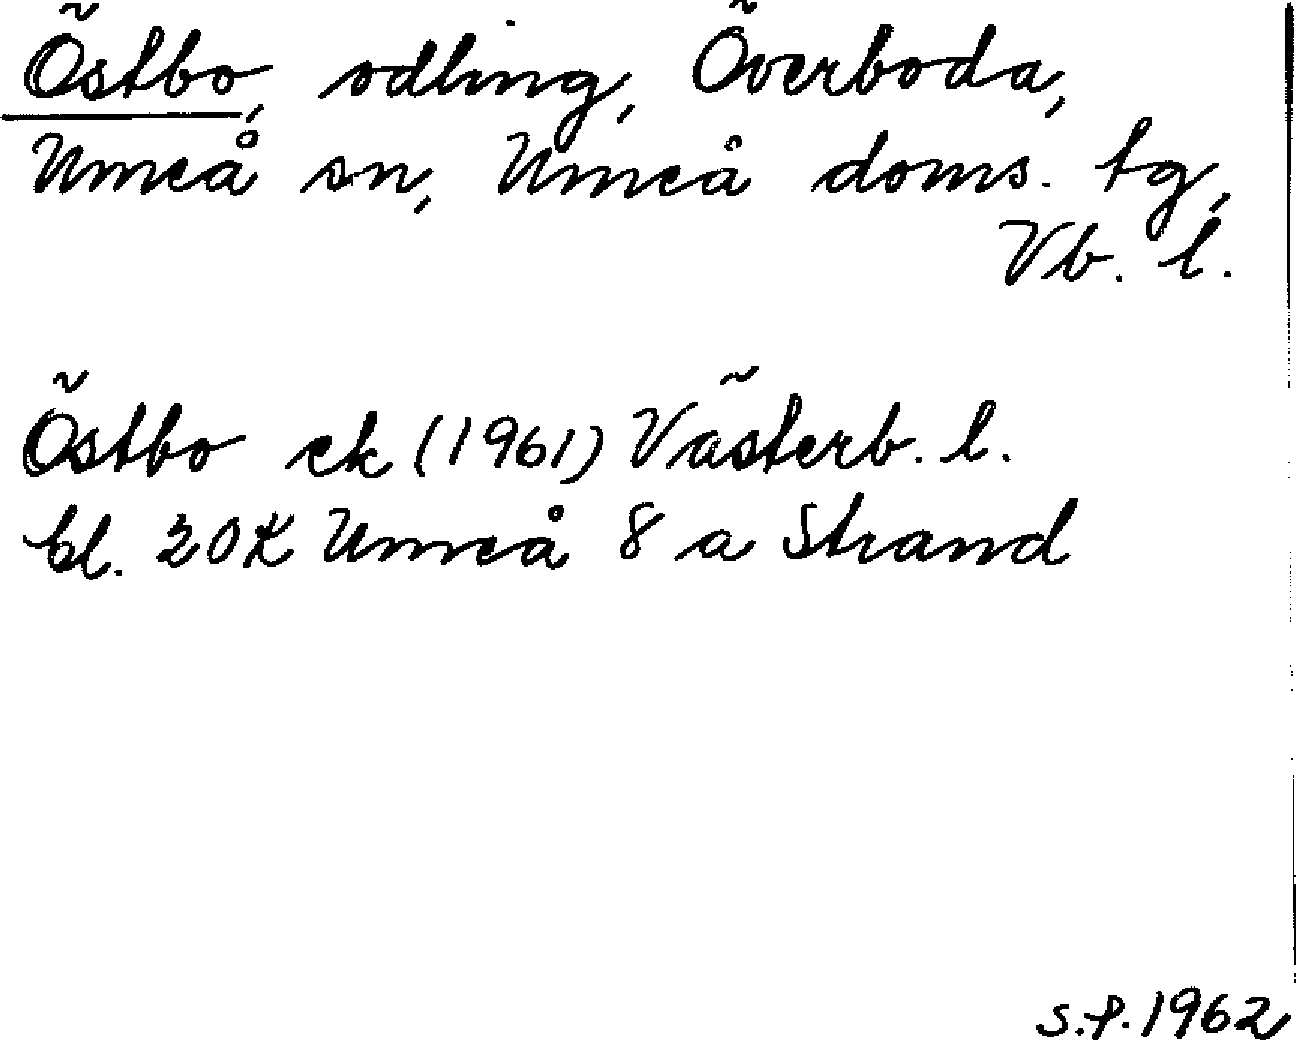 Östbo, odling, Överboda,
Umeå sn, Umeå doms. tg,
Vb. l.
Östbo ek (1961) Västerb. l.
bl. 20K Umeå 8 a Strand
s.f. 1962